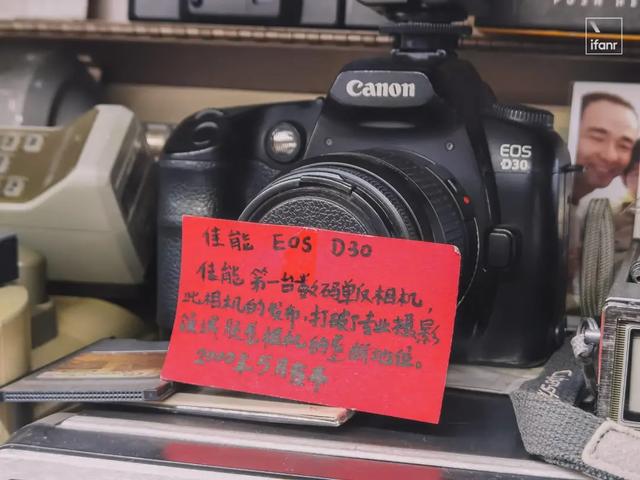 ifanr
Canon
EOS
D30
佳能 EOS D30
佳能第一台数码单反相机,
此相机的发布,打破了专业摄影
领域胶卷相机的垄断地位。
2000年5月发布